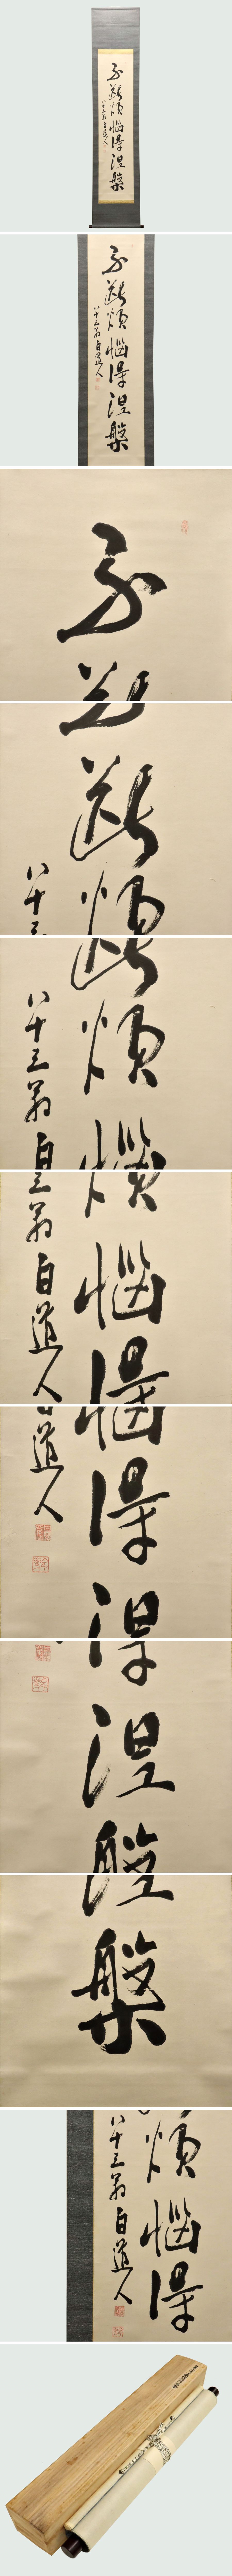 不断煩悩得涅槃
八十三翁白道人